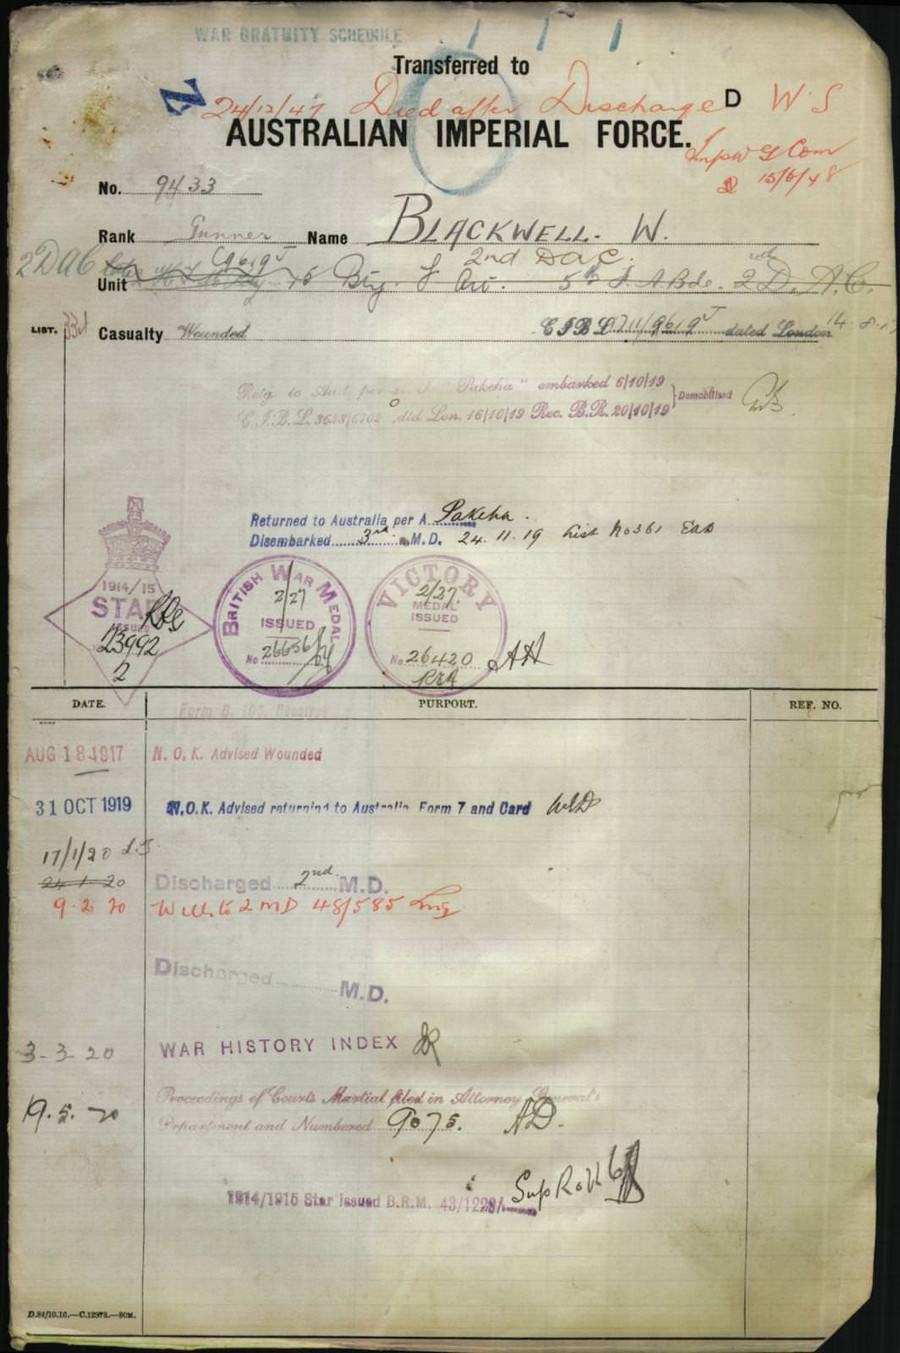 WAR GRATUITY SCHEDULE
Transferred to
24/12/47 Died after Discharge D W.S
AUSTRALIAN IMPERIAL FORCE.
15/6/48
No. 9433
Rank Gunner Name BLACKWELL. W.
2nd DAC.
2 DAC
Unit Bty. F Art. 5th F.A Bde. 2 D.A.C.
LIST. 331 Casualty Wounded dated London 14.8.17
Retg. to Aust. per "Pakeha" embarked 5/10/19
Demobilised
E.I.B.L. 3623/6702 dtd Lon. 16/10/19 Rec. B.R. 20/10/19
Returned to Australia per A Pakeha.
Disembarked 3rd M.D. 24.11.19 List No 361
1914/15
STAR
ISSUED
23992
2
BRITISH WAR MEDAL
2/27
ISSUED
No
VICTORY
2/27.
MEDAL
ISSUED
No 26420
AH
DATE. PURPORT. REF. NO.
Form B. 103. Received
AUG 18 1917 N. O. K. Advised Wounded
31 OCT 1919 N.O.K. Advised returning to Australia Form 7 and Card
17/1/20
24.1.20 Discharged 2nd M.D.
9.2.20 Will to 2 MD 48/585
Discharged M.D.
3-3-20 WAR HISTORY INDEX
19.5.20 Proceedings of Courts Martial filed in Attorney General's
Department and Numbered 9075. AD.
1914/1915 Star Issued B.R.M. 43/1229/ Sup Roll 6
D.84/10.16.—C.12972.—50M.